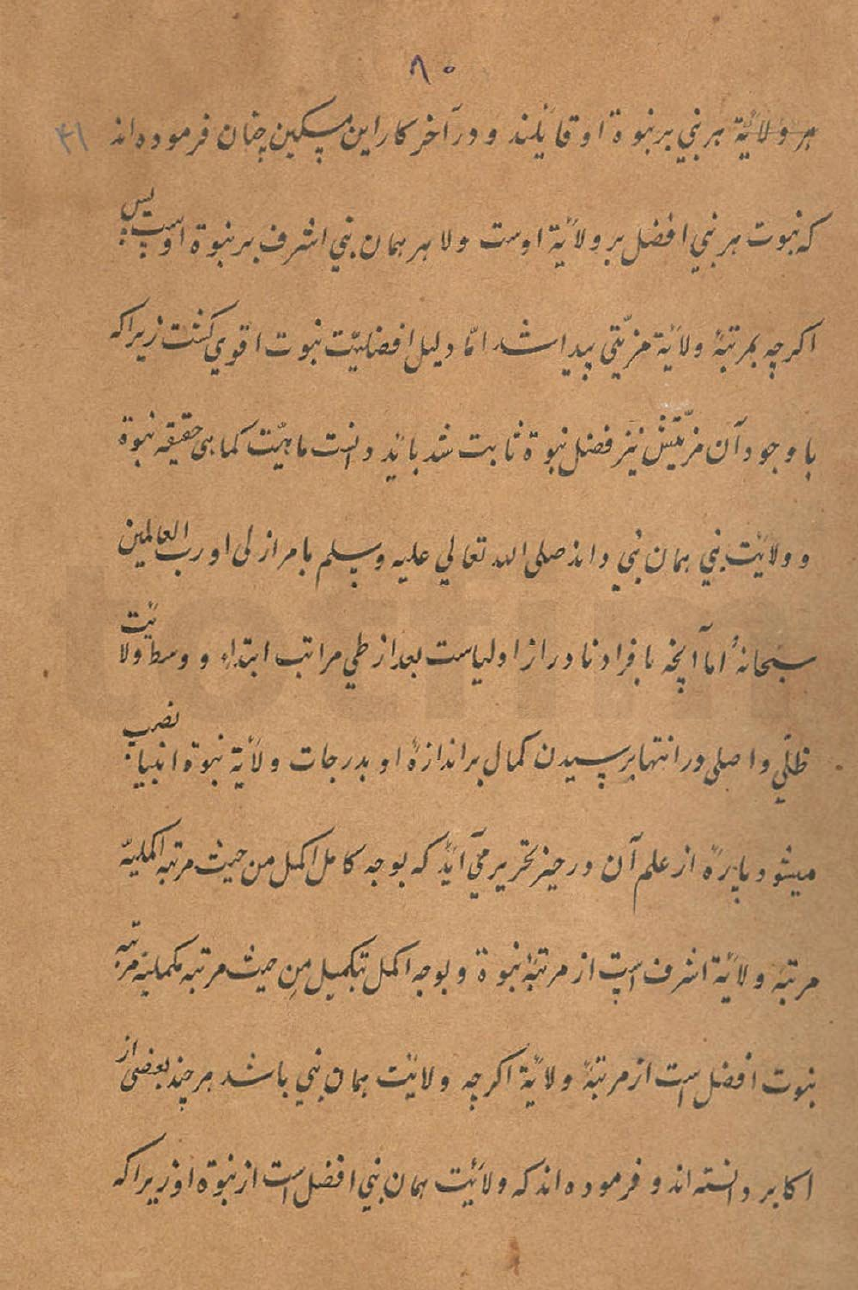 ۸۰
۴۱
هر ولایة هر نبي بر نبوة او قائلند و در آخر کار این مسکین چنان فرموده اند
که نبوت هر نبي افضل بر ولایة اوست ولا هر همان نبي اشرف بر نبوة اوست پس
اکرچه بمرتبهٔ ولایة مزیّتي پیدا شد امّا دلیل افضلیّت نبوت اقوي کشت زیرا که
با وجود آن مزیّتش نیز فضل نبوة ثابت شد باید دانست ماهیّت کماهی حقیقه نبوة
و ولایت نبي همان نبي داند صلی الله تعالي علیه وسلم بامر ازلی او رب العالمین
سبحانهٗ اما آنچه بافراد نادر از اولیاست بعد از طي مراتب ابتداء و وسط ولایت
ظلّي و اصلي در انتها برسیدن کمال بر اندازهٔ او بدرجات ولایة نبوة انبیا نصیب
میشود پارهٔ از علم آن در حیز تحریر می آید که بوجه کامل اکمل من حیث مرتبه اکملیّه
مرتبهٔ ولایة اشرف است از مرتبهٔ نبوة و بوجه اکمل تکمیل من حیث مرتبه مکملیّه مرتبه
نبوت افضل است از مرتبهٔ ولایة اکرچه ولایت همان نبي باشد هر چند بعضی از
اکابر دانسته اند و فرموده اند که ولایت همان نبي افضل است از نبوة او زیرا که